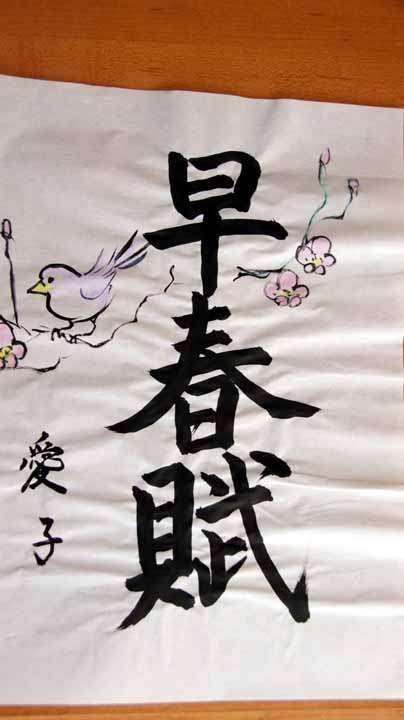 早春賦
愛子